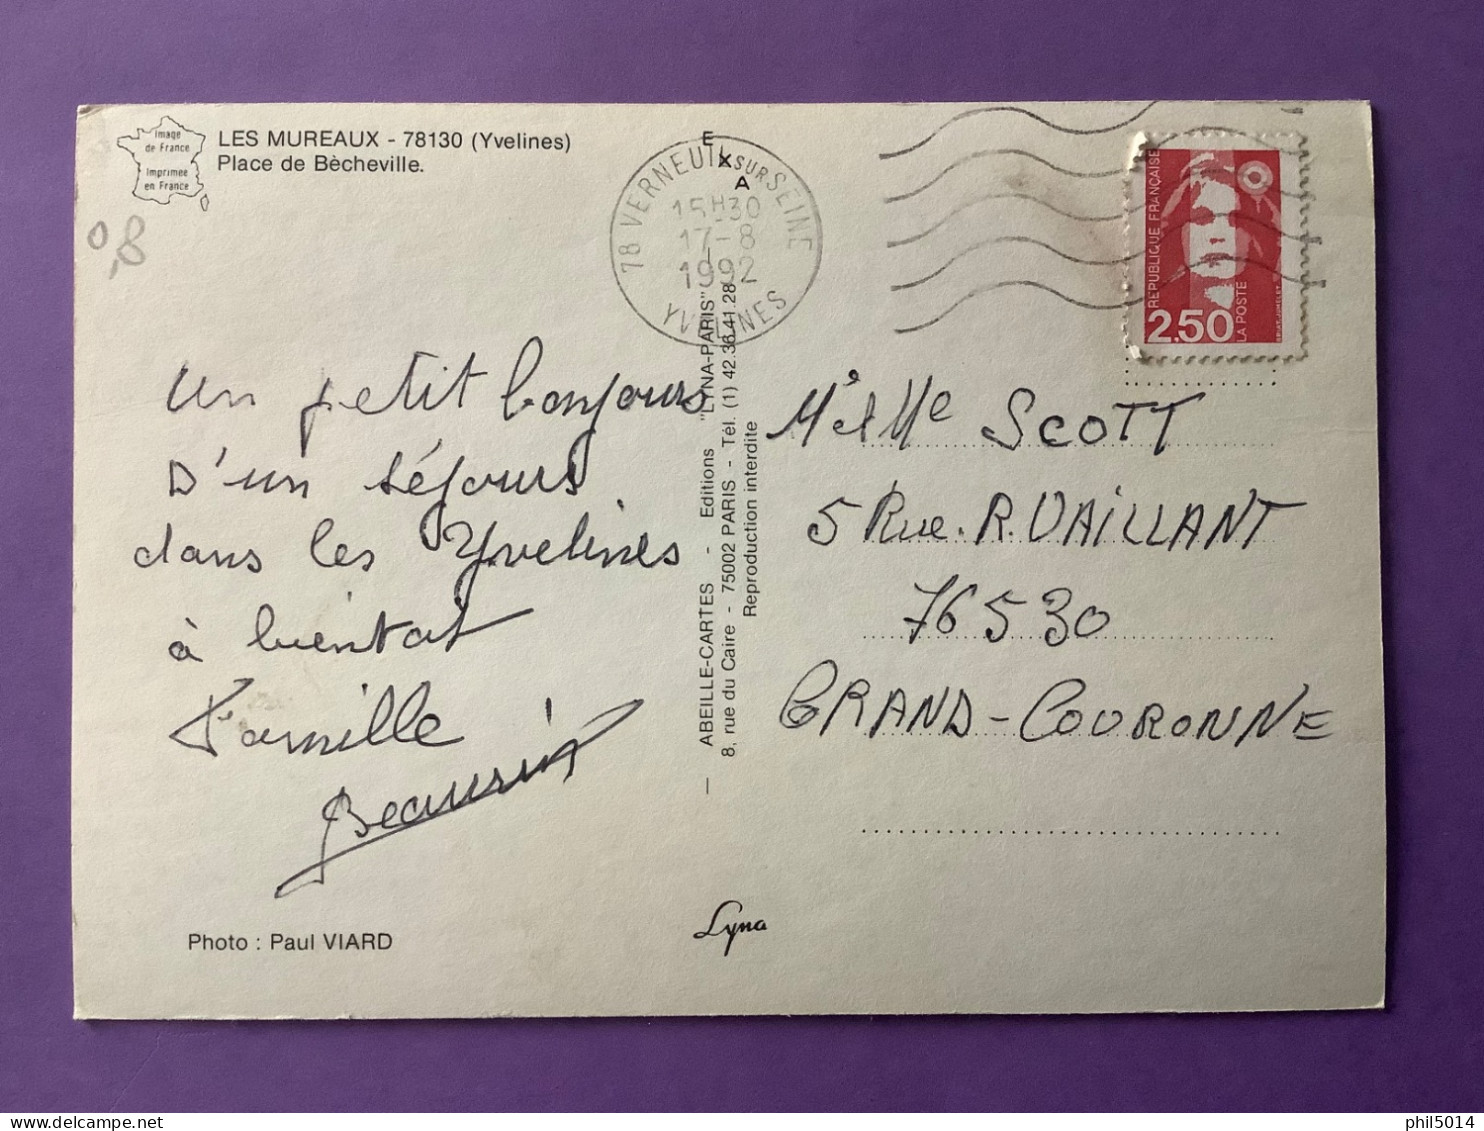 Image
de France
Imprimée
en France
LES MUREAUX - 78130 (Yvelines)
Place de Bècheville.
0,8
78 VERNEUIL SUR SEINE
15H30
17-8
1992
YVELINES
EXA
REPUBLIQUE FRANÇAISE
2,50
LA POSTE
un petit bonjours
D'un séjours
dans les Yvelines
à bientot
Famille
M et Mme SCOTT
5 Rue. R. VAILLANT
76530
GRAND-COURONNE
— ABEILLE-CARTES - Editions "LYNA-PARIS"
8, rue du Caire - 75002 PARIS - Tél. (1) 42.36.41.28
Reproduction interdite
Photo : Paul VIARD
Lyna
phil5014